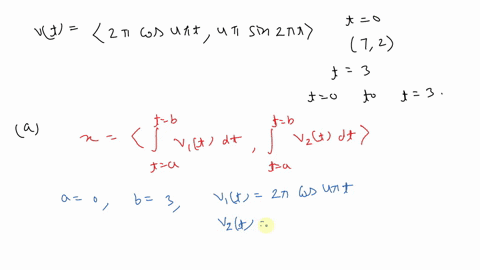 v(t) = ⟨2π cos 4πt, 4π sin 2πt⟩
t = 0
(7, 2)
t = 3
t=0 to t = 3.
(a)
x = ⟨ ∫_{t=a}^{t=b} v₁(t) dt, ∫_{t=a}^{t=b} v₂(t) dt⟩
a = 0, b = 3, v₁(t) = 2π cos 4πt
v₂(t) =